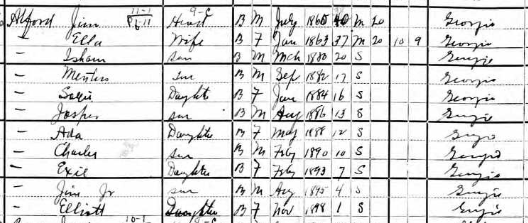 Alford Jim 11-1 6-11 Head 9-C B M July 1860 40 M 20 Georgia
— Ella Wife B F Jan 1863 37 M 20 10 9 Georgia
— Isham Son B M Mch 1880 20 S Georgia
— Son B M Sep 1882 17 S Georgia
— Daughter B F Jan 1884 16 S Georgia
— Josper Son B M Aug 1886 13 S Georgia
— Ada Daughter B F May 1888 12 S Georgia
— Charles Son B M Feby 1890 10 S Georgia
— Exie Daughter B F Feby 1893 7 S Georgia
— Jim Jr Son B M Aug 1895 4 S Georgia
— Elliott Daughter B F Nov 1898 1 S Georgia
10-1